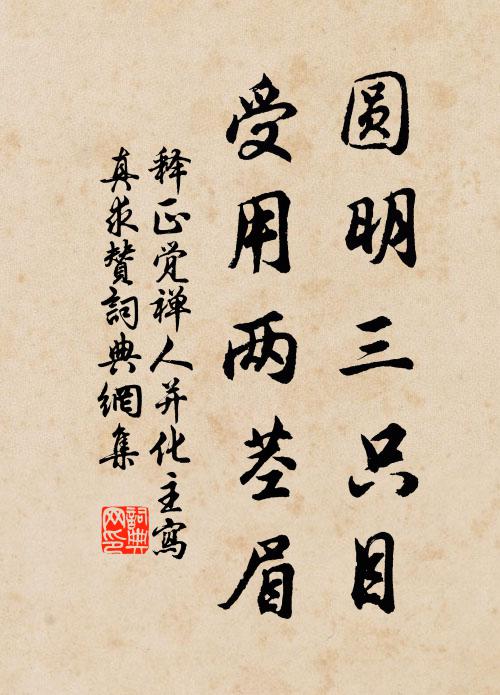 圆明三只目
受用两茎眉
释正觉禅人并化主寫
真求赞詞典網集
詞典
网印